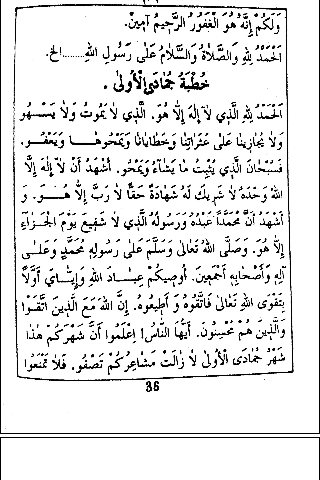 وَلَكُمْ إِنَّهُ هُوَ الْغَفُورُ الرَّحِيمُ آمِينْ.
اَلْحَمْدُ لِلَّهِ وَالصَّلَاةُ وَالسَّلَامُ عَلَى رَسُولِ اللهِ..........الخ.
خُطْبَةُ جُمَادَى الْأُولَى .
اَلْحَمْدُ لِلَّهِ الَّذِي لَا إِلَهَ إِلَّا هُوَ. الَّذِي لَا يَمُوتُ وَلَا يَسْهُو
وَلَا يُجَازِينَا عَلَى عَثَرَاتِنَا وَخَطَايَانَا وَيَمْحُوهَا وَيَعْفُو.
فَسُبْحَانَ الَّذِي يُثْبِتُ مَا يَشَاءُ وَيَمْحُو. أَشْهَدُ أَنْ لَا إِلَهَ إِلَّا
اللهُ وَحْدَهُ لَا شَرِيكَ لَهُ شَهَادَةً حَقًّا لَا رَبَّ إِلَّا هُوَ. وَ
أَشْهَدُ أَنَّ مُحَمَّدًا عَبْدُهُ وَرَسُولُهُ الَّذِي لَا شَفِيعَ يَوْمَ الْجَزَاءِ
إِلَّا هُوَ. وَصَلَّى اللهُ تَعَالَى وَسَلَّمَ عَلَى رَسُولِهِ مُحَمَّدٍ وَعَلَى
آلِهِ وَأَصْحَابِهِ أَجْمَعِينَ. أُوصِيكُمْ عِبَادَ اللهِ وَإِيَّايَ أَوَّلًا
بِتَقْوَى اللهِ تَعَالَى فَاتَّقُوهُ وَ أَطِيعُوهُ. إِنَّ اللهَ مَعَ الَّذِينَ اتَّقَوْا
وَالَّذِينَ هُمْ مُحْسِنُونَ. أَيُّهَا النَّاسُ! اِعْلَمُوا أَنَّ شَهْرَكُمْ هَذَا
شَهْرُ جُمَادَى الْأُولَى لَا زَالَتْ مَشَاعِرُكُمْ تَصْفُو. فَلَا تَمْنَعُوا
36